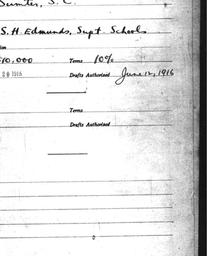 Sumter, S. C.
S. H. Edmunds, Supt. Schools
10,000 Terms 10%
1916 Drafts Authorized June 12, 1916
Terms
Drafts Authorized